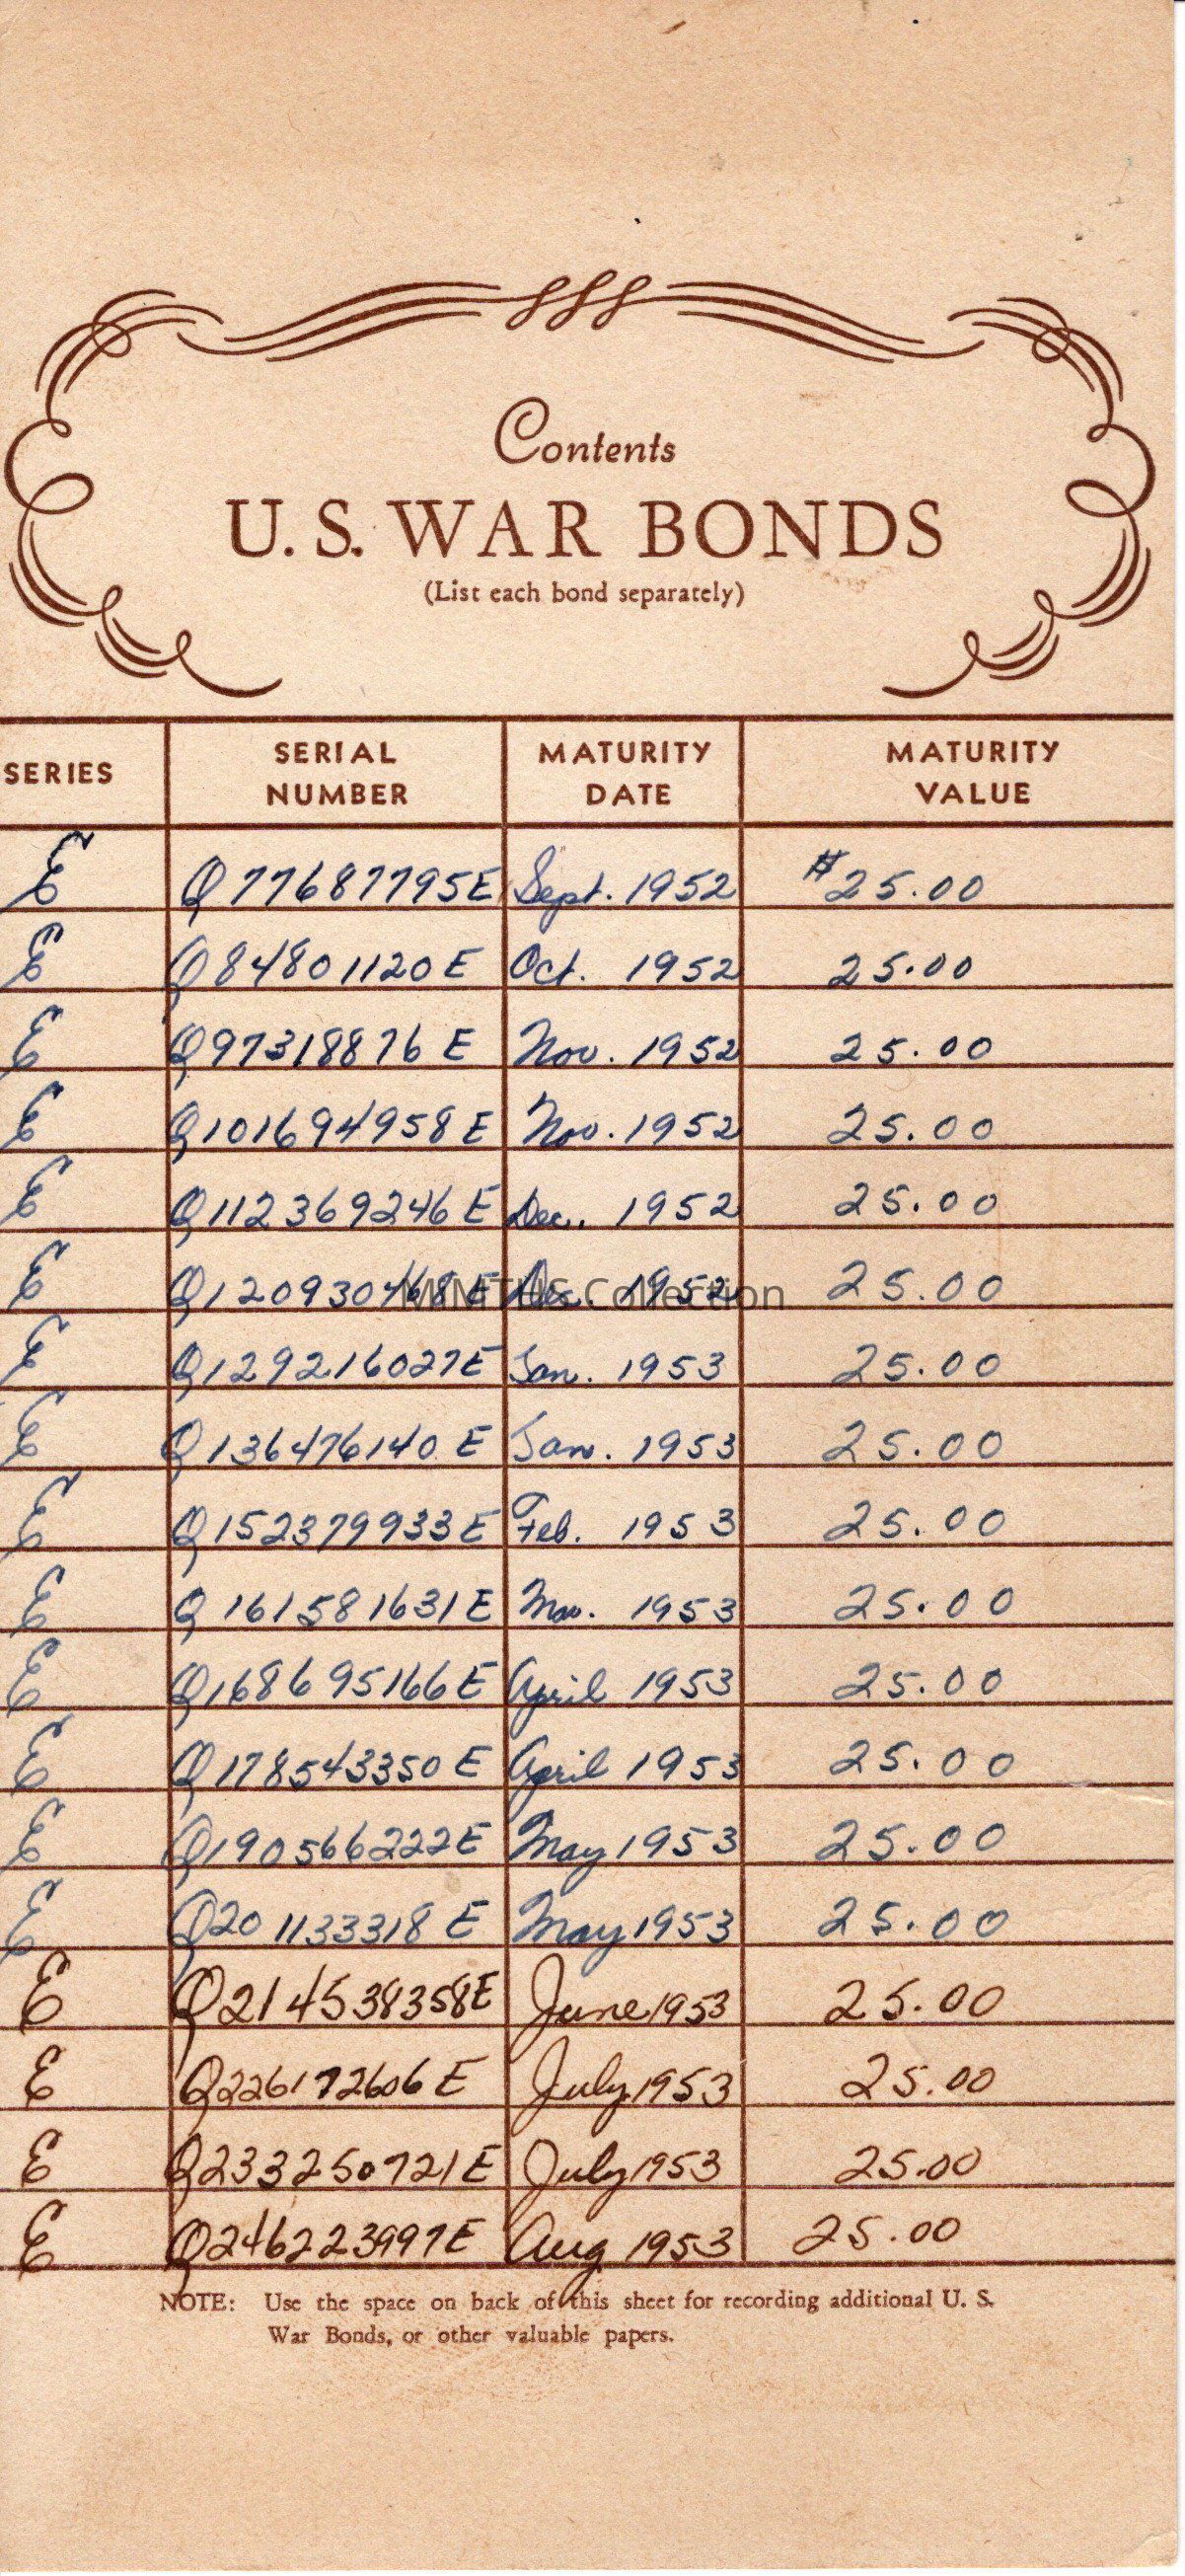 Contents
U. S. WAR BONDS
(List each bond separately)
SERIES SERIAL NUMBER MATURITY DATE MATURITY VALUE
E Q77687795E Sept. 1952 $25.00
E Q84801120E Oct. 1952 25.00
E Q97318876E Nov. 1952 25.00
E Q101694958E Nov. 1952 25.00
E Q112369246E Dec. 1952 25.00
E Q120930468E Dec. 1952 25.00
MMTHS Collection
E Q129216027E Jan. 1953 25.00
E Q136476140E Jan. 1953 25.00
E Q152379933E Feb. 1953 25.00
E Q161581631E Mar. 1953 25.00
E Q168695166E April 1953 25.00
E Q178543350E April 1953 25.00
E Q190566222E May 1953 25.00
E Q201133318E May 1953 25.00
E Q214538358E June 1953 25.00
E Q226172606E July 1953 25.00
E Q233250721E July 1953 25.00
E Q246223997E Aug 1953 25.00
NOTE: Use the space on back of this sheet for recording additional U. S.
War Bonds, or other valuable papers.